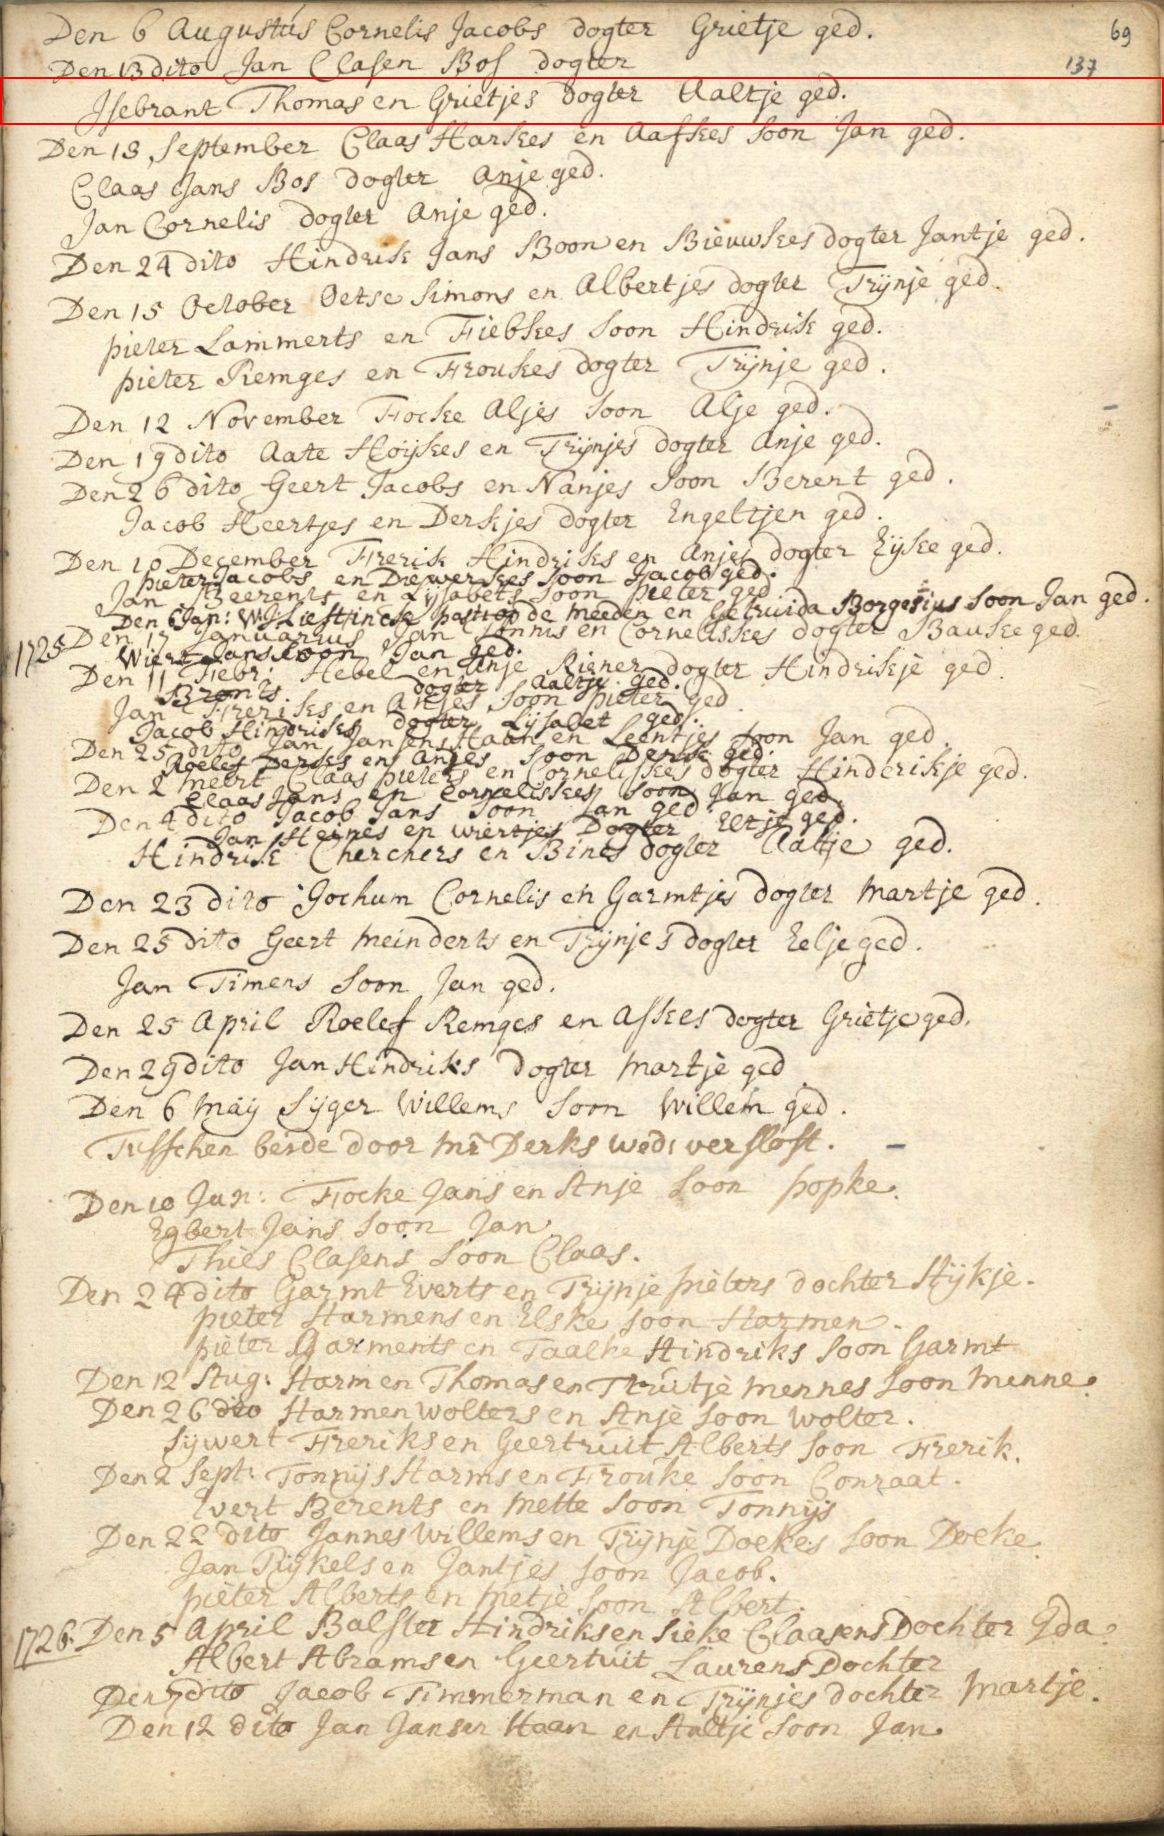 Den 6 Augustus Cornelis Jacobs dogter Grietje ged.
69
Den 13 dito Jan Clasen Bos dogter
137
Isebrant Thomas en Grietjes dogter Aaltje ged.
Den 13 September Claas Harkes en Aafkes soon Jan ged.
Claas Jans Bos dogter Anje ged.
Jan Cornelis dogter Anje ged.
Den 24 dito Hindrik Jans Boon en Bieuwkes dogter Jantje ged.
Den 15 October Oetse Simons en Albertjes dogter Trijnje ged.
pieter Lammerts en Fiebkes soon Hindrik ged.
pieter Remges en Froukes dogter Trijnje ged.
Den 12 November Focke Aljes soon Alje ged.
Den 19 dito Aate Hoijkes en Trijnjes dogter Anje ged.
Den 26 dito Geert Jacobs en Nanjes soon Berent ged.
Jacob Heertjes en Derkjes dogter Engeltjen ged.
Den 10 December Frerik Hindriks en Anjes dogter Eijke ged.
pieter Jacobs en Diewerkes soon Jacob ged.
Jan Beerents en Lijsabets soon pieter ged.
Den 6 Jan: W: J: Lieftinck past: op de meeden en Getruida Borgesius soon Jan ged.
1725 Den 17 Januarius Jan Tonnis en Corneliskes dogter Bauke ged.
Wiert Jans soon Jan ged.
Den 11 Febr. Hebel en Anje Riener dogter Hindrikje ged.
dogter Aaltje ged.
Jan Freriks en Antjes soon pieter ged.
Jacob Hindriks dogter Lijsabet ged.
Den 25 dito Jan Jansens Haan en Leentjes soon Jan ged.
Roelef Derks en Anjes soon Derk ged.
Den 2 meert Claas pieters en Corneliskes dogter Hinderikje ged.
Claas Jans en Corneliskes soon Jan ged.
Den 4 dito Jacob Jans soon Jan ged.
Jan Heines en wiertjes Dogter Eltje ged.
Hindrik Cherchers en Bines dogter Aaltje ged.
Den 23 dito Jochum Cornelis en Garmtjes dogter Martje ged.
Den 25 dito Geert meinderts en Trijnjes dogter Eelje ged.
Jan Timens soon Jan ged.
Den 25 April Roelef Remges en Afkes dogter Grietje ged.
Den 29 dito Jan Hindriks dogter Martje ged
Den 6 maij Sijger Willems soon Willem ged.
Tusschen beide door mr Derks wed: verslost.
Den 10 Jun: Focke Jans en Anje soon popke.
Egbert Jans soon Jan
Thies Clasens soon Claas.
Den 24 dito Garmt Everts en Trijnje pieters dochter Hijkje.
pieter Harmens en Elske soon Harmen.
pieter Garments en Taalke Hindriks soon Garmt
Den 12 Aug: Harmen Thomas en Truitje mennes soon menne.
Den 26 dito Harmen Wolters en Anje soon Wolter.
Sijwert Freriks en Geertruit Alberts soon Frerik.
Den 2 Sept: Tonnijs Harms en Frouke soon Conraat.
Evert Berents en Mette soon Tonnijs
Den 22 dito Jannes Willems en Trijnje Doekes soon Doeke.
Jan Rijkels en Jantjes soon Jacob.
pieter Alberts en Metje soon Albert.
1726. Den 5 April Balster Hindriks en Sieke Claasens Dochter Ida.
Albert Abrams en Geertuit Laurens Dochter
Den 7 dito Jacob Timmerman en Trijnjes dochter Martje.
Den 12 dito Jan Janser Haan en Aaltje soon Jan.